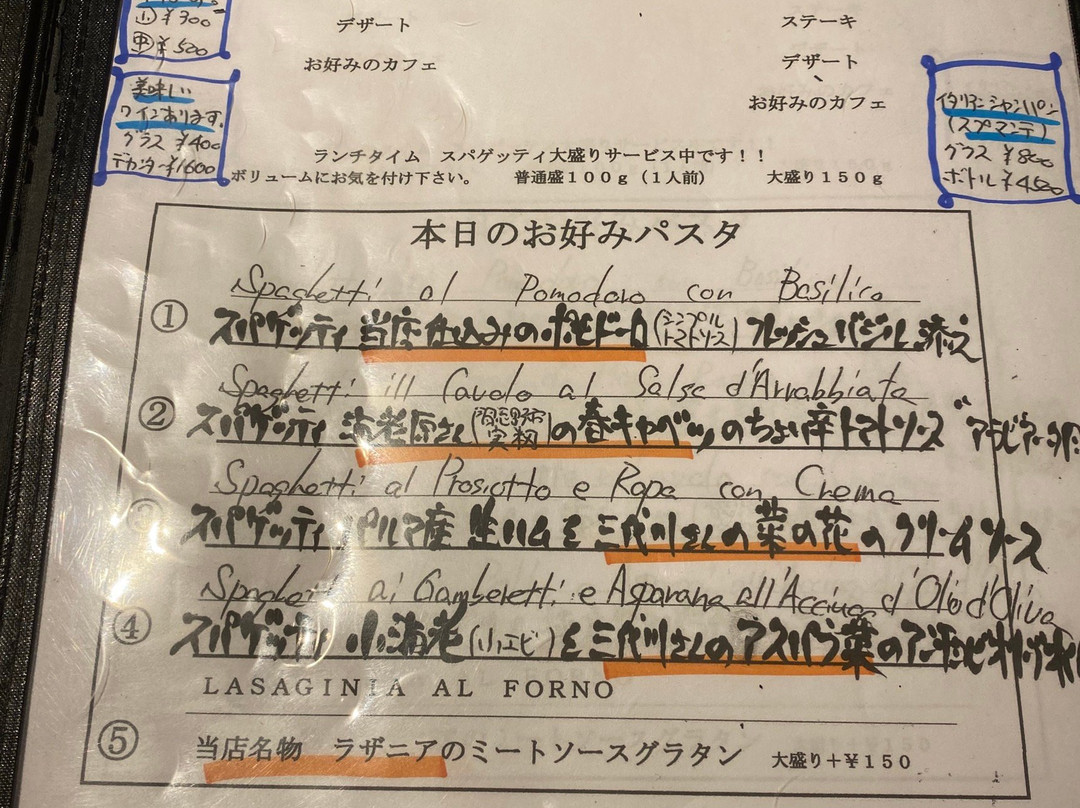 小 ¥300
中 ¥500
美味しい
ワインあります。
グラス ¥400
デカンター ¥1600
デザート
お好みのカフェ
ステーキ
デザート
お好みのカフェ
イタリアンシャンパン
(スプマンテ)
グラス ¥800
ボトル ¥4500
ランチタイム スパゲッティ大盛りサービス中です！！
ボリュームにお気を付け下さい。 普通盛100g（1人前） 大盛り150g
本日のお好みパスタ
Spaghetti al Pomodoro con Basilico
① スパゲッティ 当店仕込みのポモドーロ (シンプルトマトソース) フレッシュバジル添え
Spaghetti ill Cavolo al Salsa d'Arrabbiata
② スパゲッティ 海老原さんの春キャベツのちょい辛トマトソース
Spaghetti al Prosiotto e Rapa con Crema
③ スパゲッティ パルマ産 生ハムと三代川さんの菜の花のクリームソース
Spaghetti ai Gamberetti e Asparana all'Acciuga d'Olio d'Oliva
④ スパゲッティ 小海老(小エビ)と三代川さんのアスパラ菜の
LASAGINIA AL FORNO
⑤ 当店名物 ラザニアのミートソースグラタン 大盛り+¥150